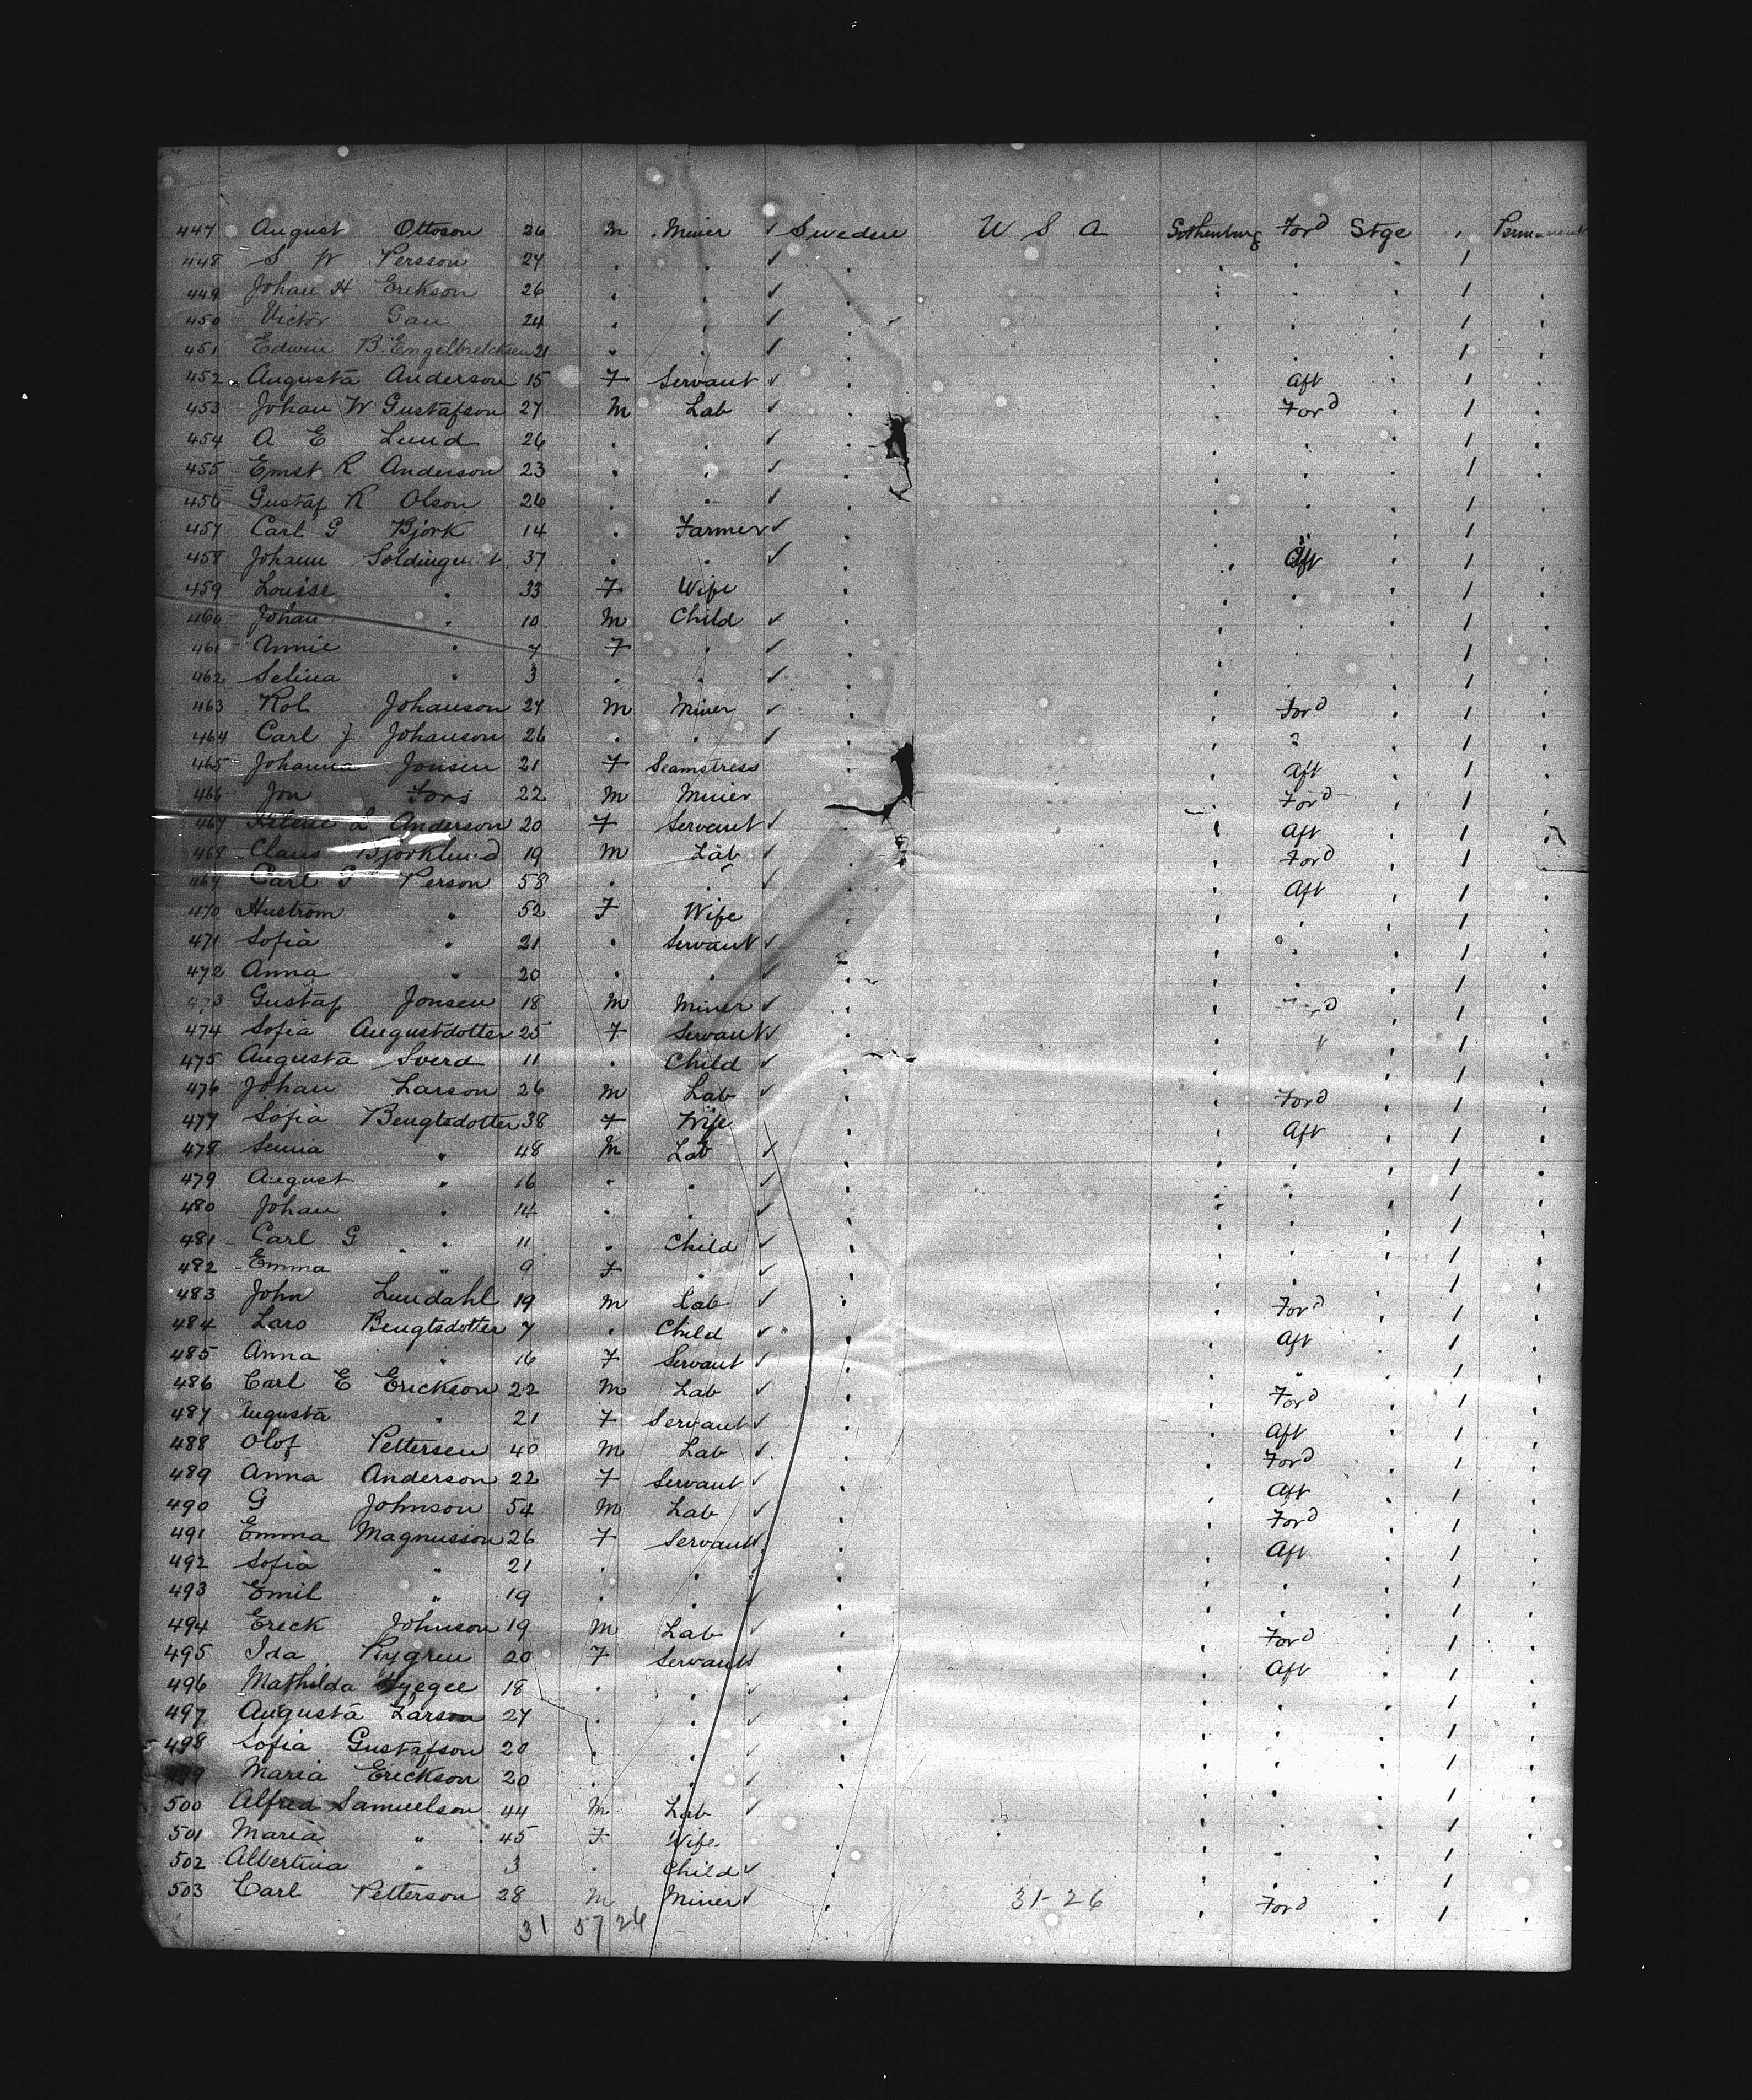 447 August Ottoson 26 m Miner ✓ Sweden U S A Gothenburg Ford Stge 1 Permanent
448 S W Persson 24 . . ✓ . . . . 1 .
449 Johan H Erikson 26 . . ✓ . . . . 1 .
450 Victor Gau 24 . . ✓ . . . . 1 .
451 Edwin B. 21 . . ✓ . . . . 1 .
452 Augusta Anderson 15 F Servant ✓ . . Aft . 1 .
453 Johan W Gustafson 27 M Lab ✓ . . Ford . 1 .
454 A E Lund 26 . . ✓ . . . . 1 .
455 Ernst R Anderson 23 . . ✓ . . . . 1 .
456 Gustaf R Olson 26 . . ✓ . . . . 1 .
457 Carl G Bjork 14 . Farmer ✓ . . . . 1 .
458 Johann 37 . . ✓ . . Aft . 1 .
459 Louise . 33 F Wife . . . . 1 .
460 Johan . 10 M Child ✓ . . . . 1 .
461 Annie . 7 F . ✓ . . . . 1 .
462 Selina . 3 . . ✓ . . . . 1 .
463 Rob Johanson 24 M Miner ✓ . . Ford . 1 .
464 Carl J Johanson 26 . . ✓ . . . . 1 .
465 Johanna Jonsen 21 F Seamstress . . Aft . 1 .
466 Jon Fors 22 M Miner . . Ford . 1 .
467 L Anderson 20 F Servant ✓ . . Aft . 1 .
468 Claus Bjorklund 19 M Lab ✓ . . Ford . 1
469 Carl G Person 58 . . ✓ . . Aft . 1 .
470 Hustrom " 52 F Wife . . . . 1 .
471 Sofia " 21 . Servant ✓ . . . . 1 .
472 Anna " 20 . . ✓ . . . . 1 .
473 Gustaf Jonsen 18 M Miner ✓ . . . 1 .
474 Sofia Augustdotter 25 F Servant ✓ . . . 1 .
475 Augusta Sverd 11 . Child ✓ . . . 1 .
476 Johan Larson 26 M Lab ✓ . . Ford . 1 .
477 Sofia Bengtsdotter 38 F Wife . . Aft . 1 .
478 " 48 M Lab ✓ . . . . 1 .
479 August " 16 . . ✓ . . . . 1 .
480 Johan " 14 . . ✓ . . . . 1 .
481 Carl G " 11 . Child ✓ . . . . 1 .
482 Emma " 9 F . ✓ . . . . 1 .
483 John Lundahl 19 M Lab ✓ . . Ford . 1 .
484 Lars Bengtsdotter 7 . Child ✓ . . Aft . 1 .
485 Anna " 16 F Servant ✓ . . . . 1 .
486 Carl E Erickson 22 M Lab ✓ . . Ford . 1 .
487 Augusta " 21 F Servant ✓ . . Aft . 1 .
488 Olof Pettersen 40 M Lab ✓ . . Ford . 1 .
489 Anna Anderson 22 F Servant ✓ . . Aft . 1 .
490 G Johnson 54 M Lab ✓ . . Ford . 1 .
491 Emma Magnusson 26 F Servant . . Aft . 1 .
492 Sofia " 21 . . . . . . 1 .
493 Emil " 19 . . ✓ . . . . 1 .
494 Ereck Johnson 19 M Lab ✓ . . Ford . 1 .
495 Ida Rygren 20 F Servant . . Aft . 1 .
496 Mathilda 18 . . ✓ . . . . 1 .
497 Augusta Larson 27 . . ✓ . . . . 1 .
498 Sofia Gustafson 20 . . ✓ . . . . 1 .
499 Maria Erickson 20 . . ✓ . . . . 1 .
500 Alfred Samuelson 44 M Lab ✓ . . . . 1 .
501 Maria " 45 F Wife . . . . 1 .
502 Albertina " 3 . Child ✓ . . . . 1 .
503 Carl Petterson 28 M Miner ✓ . 31-26 . Ford . 1 .
31 57 26